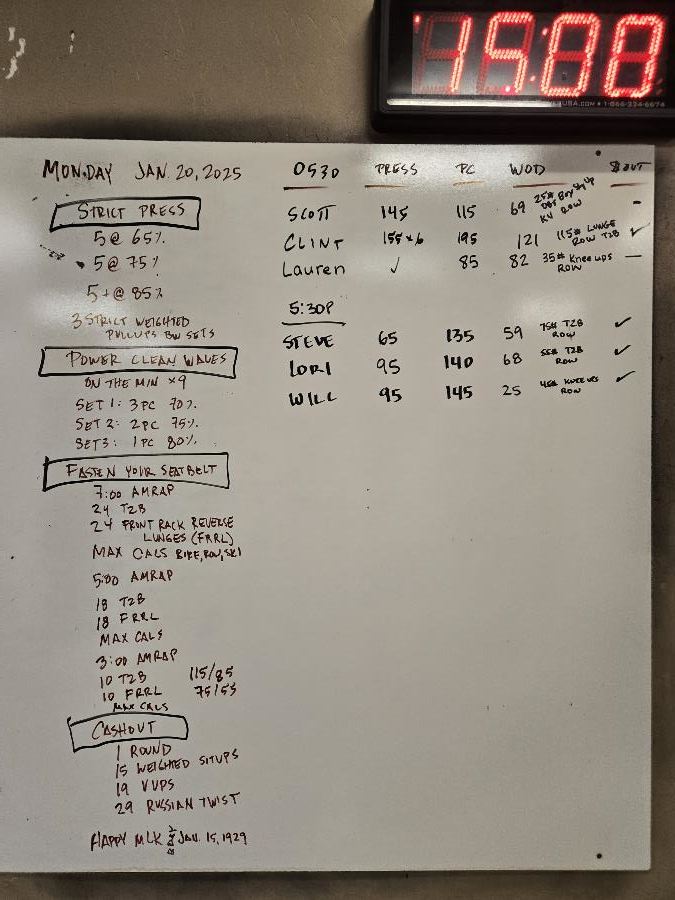 15:00
MONDAY JAN. 20, 2025
STRICT PRESS
5 @ 65%
5@ 75%
5+@ 85%
3 STRICT WEIGHTED
PULLUPS BW SETS
POWER CLEAN WAVES
ON THE MIN x9
SET 1: 3 PC 70%
SET 2: 2PC 75%
SET3: 1PC 80%
FASTEN YOUR SEATBELT
7:00 AMRAP
24 T2B
24 FRONT RACK REVERSE
LUNGES (FRRL)
MAX CALS BIKE, ROW, SKI
5:00 AMRAP
18 T2B
18 FRRL
MAX CALS
3:00 AMRAP
10 T2B 115/85
10 FRRL 75/55
MAX CALS
CASHOUT
1 ROUND
15 WEIGHTED SITUPS
19 VUPS
29 RUSSIAN TWIST
HAPPY MLK JAN. 15, 1929
0530 PRESS PC WOD $OUT
SCOTT 145 115 69 25# DBs Box Step Up
KU ROW -
CLINT 155x6 195 121 115# LUNGE
ROW T2B ✓
Lauren ✓ 85 82 35# Knee ups
ROW —
5:30P
STEVE 65 135 59 75# T2B
ROW ✓
LORI 95 140 68 55# T2B
ROW ✓
WILL 95 145 25 45# KNEE UPS
ROW ✓